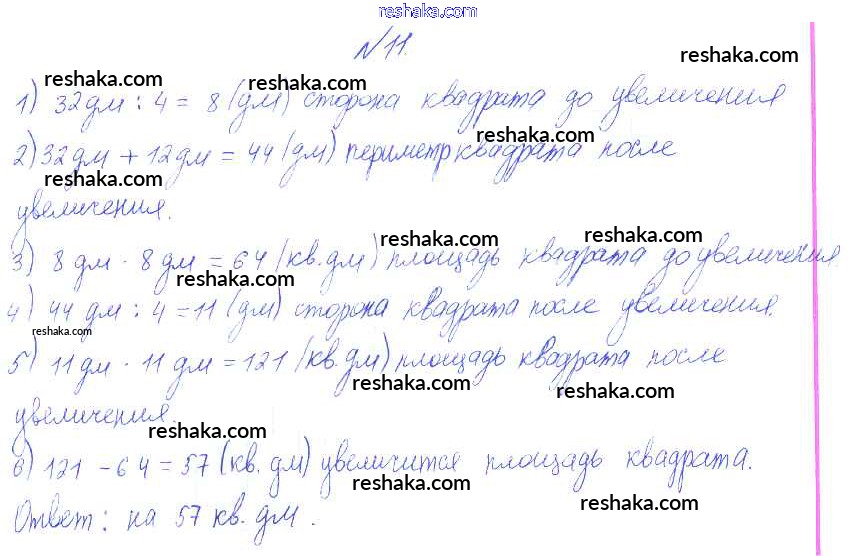 reshaka.com
№11.
reshaka.com
reshaka.com
reshaka.com
1) 32дм : 4 = 8 (дм) сторона квадрата до увеличения
reshaka.com
reshaka.com
2) 32дм + 12дм = 44 (дм) периметр квадрата после
reshaka.com
увеличения.
reshaka.com
reshaka.com
3) 8дм · 8дм = 64 (кв.дм) площадь квадрата до увеличения
reshaka.com
4) 44 дм : 4 = 11 (дм) сторона квадрата после увеличения.
reshaka.com
reshaka.com
5) 11дм · 11дм = 121 (кв.дм) площадь квадрата после
reshaka.com
reshaka.com
увеличения.
reshaka.com
reshaka.com
6) 121 - 64 = 57 (кв.дм) увеличится площадь квадрата.
reshaka.com
reshaka.com
Ответ: на 57 кв.дм.